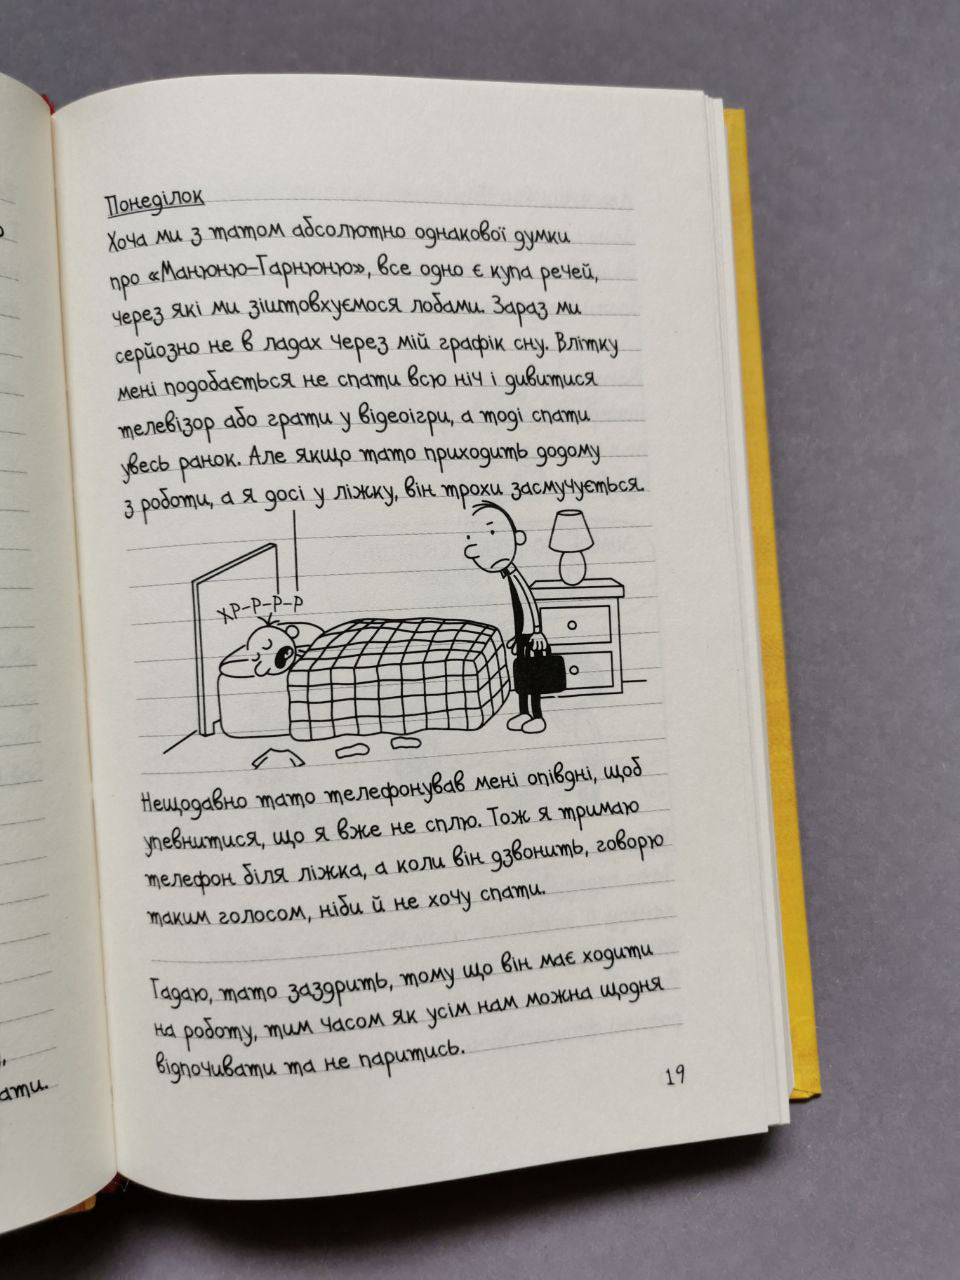 Понеділок
Хоча ми з татом абсолютно однакової думки
про «Манюню-Гарнюню», все одно є купа речей,
через які ми зіштовхуємося лобами. Зараз ми
серйозно не в ладах через мій графік сну. Влітку
мені подобається не спати всю ніч і дивитися
телевізор або грати у відеоігри, а тоді спати
увесь ранок. Але якщо тато приходить додому
з роботи, а я досі у ліжку, він трохи засмучується.
ХР-Р-Р-Р
Нещодавно тато телефонував мені опівдні, щоб
упевнитися, що я вже не сплю. Тож я тримаю
телефон біля ліжка, а коли він дзвонить, говорю
таким голосом, ніби й не хочу спати.
Гадаю, тато заздрить, тому що він має ходити
на роботу, тим часом як усім нам можна щодня
відпочивати та не паритись.
19
ати.